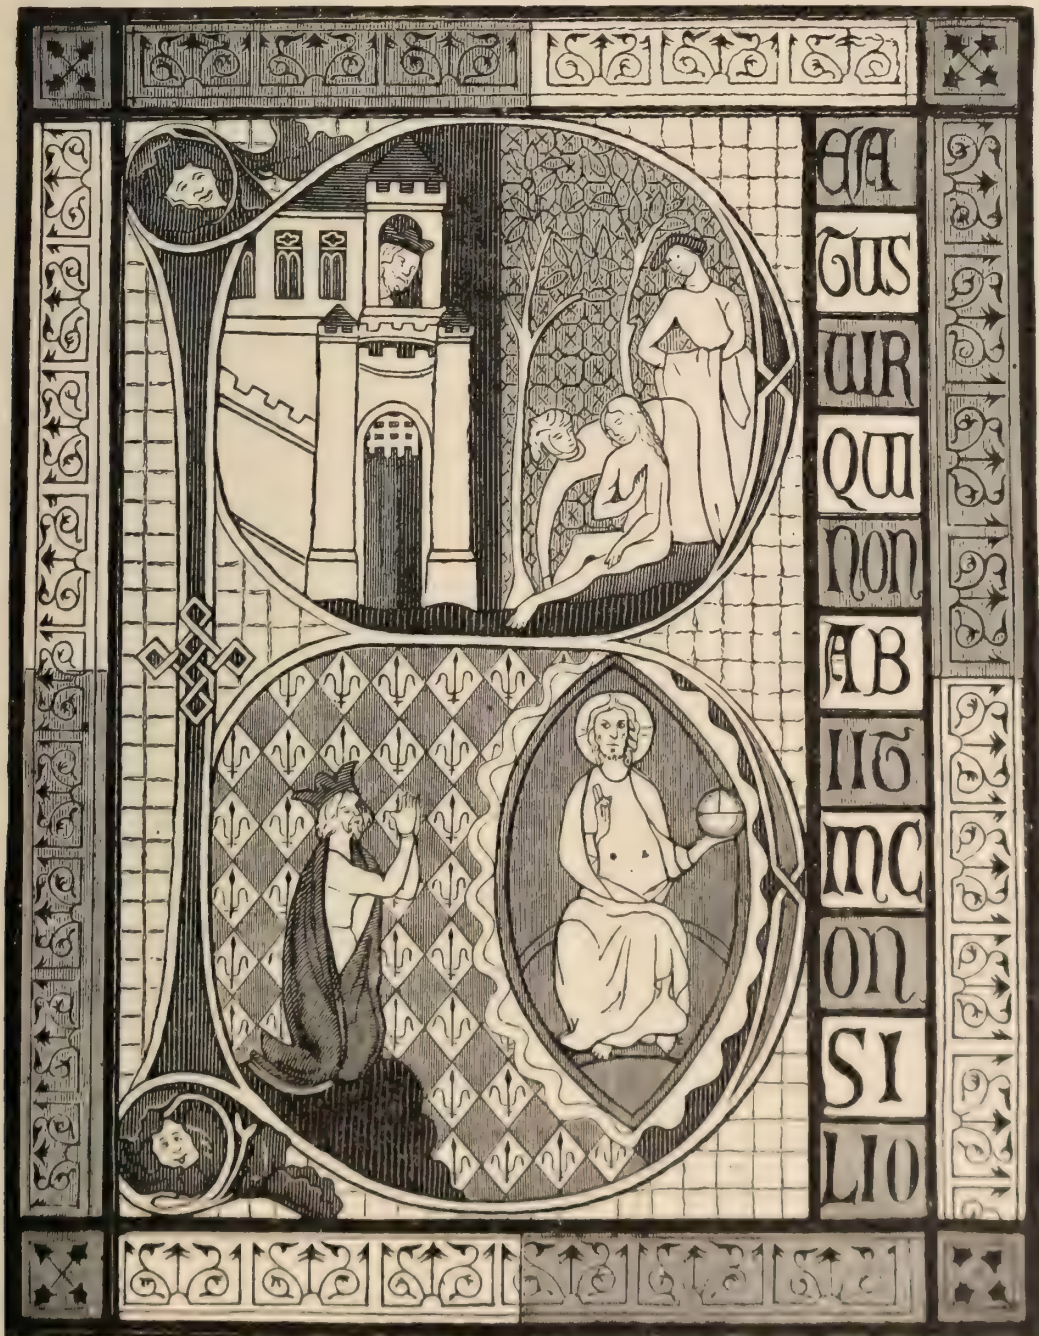 B
EA
TUS
UIR
QUI
NON
AB
IIT
INC
ON
SI
LIO